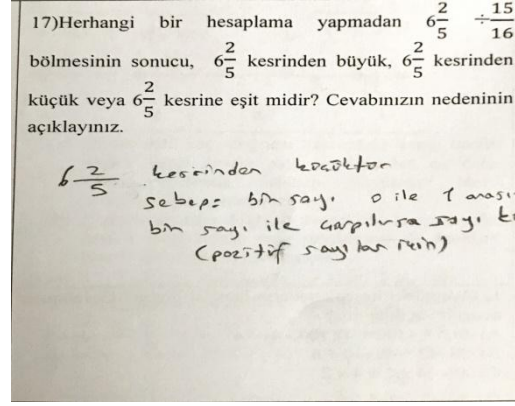 17)Herhangi bir hesaplama yapmadan 6 2/5 ÷ 15/16
bölmesinin sonucu, 6 2/5 kesrinden büyük, 6 2/5 kesrinden
küçük veya 6 2/5 kesrine eşit midir? Cevabınızın nedeninin
açıklayınız.
6 2/5 kesrinden küçüktür
sebep: bir sayı 0 ile 1 arası
bir sayı ile çarpılırsa sayı
(pozitif sayılar için)